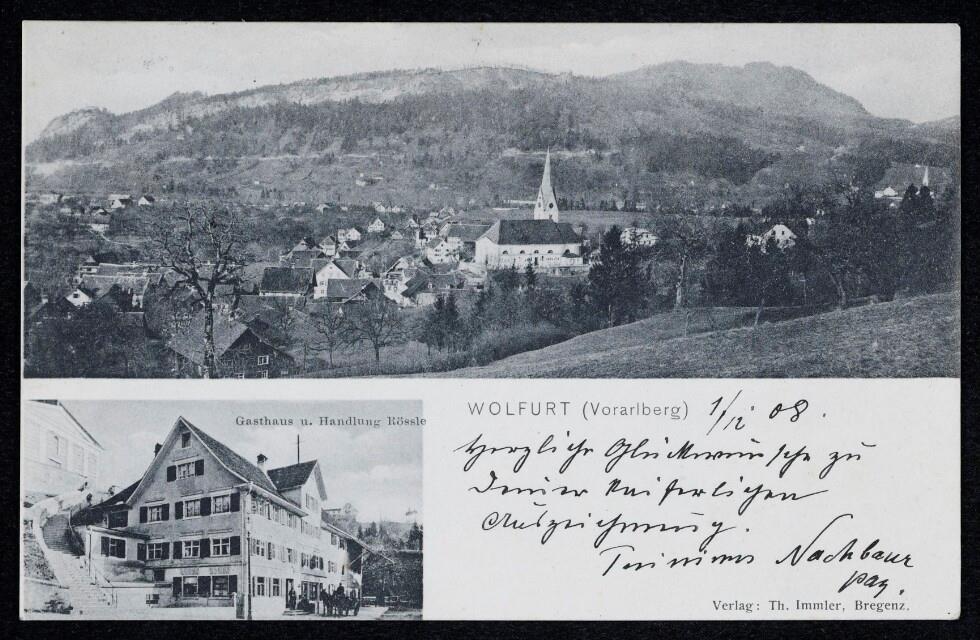 Gasthaus u. Handlung Rössle
WOLFURT (Vorarlberg) 1/12 08.
Herzliche Glückwünsche zu
Deiner kaiserlichen
Auszeichnung.
Nachbaur
Verlag: Th. Immler, Bregenz.